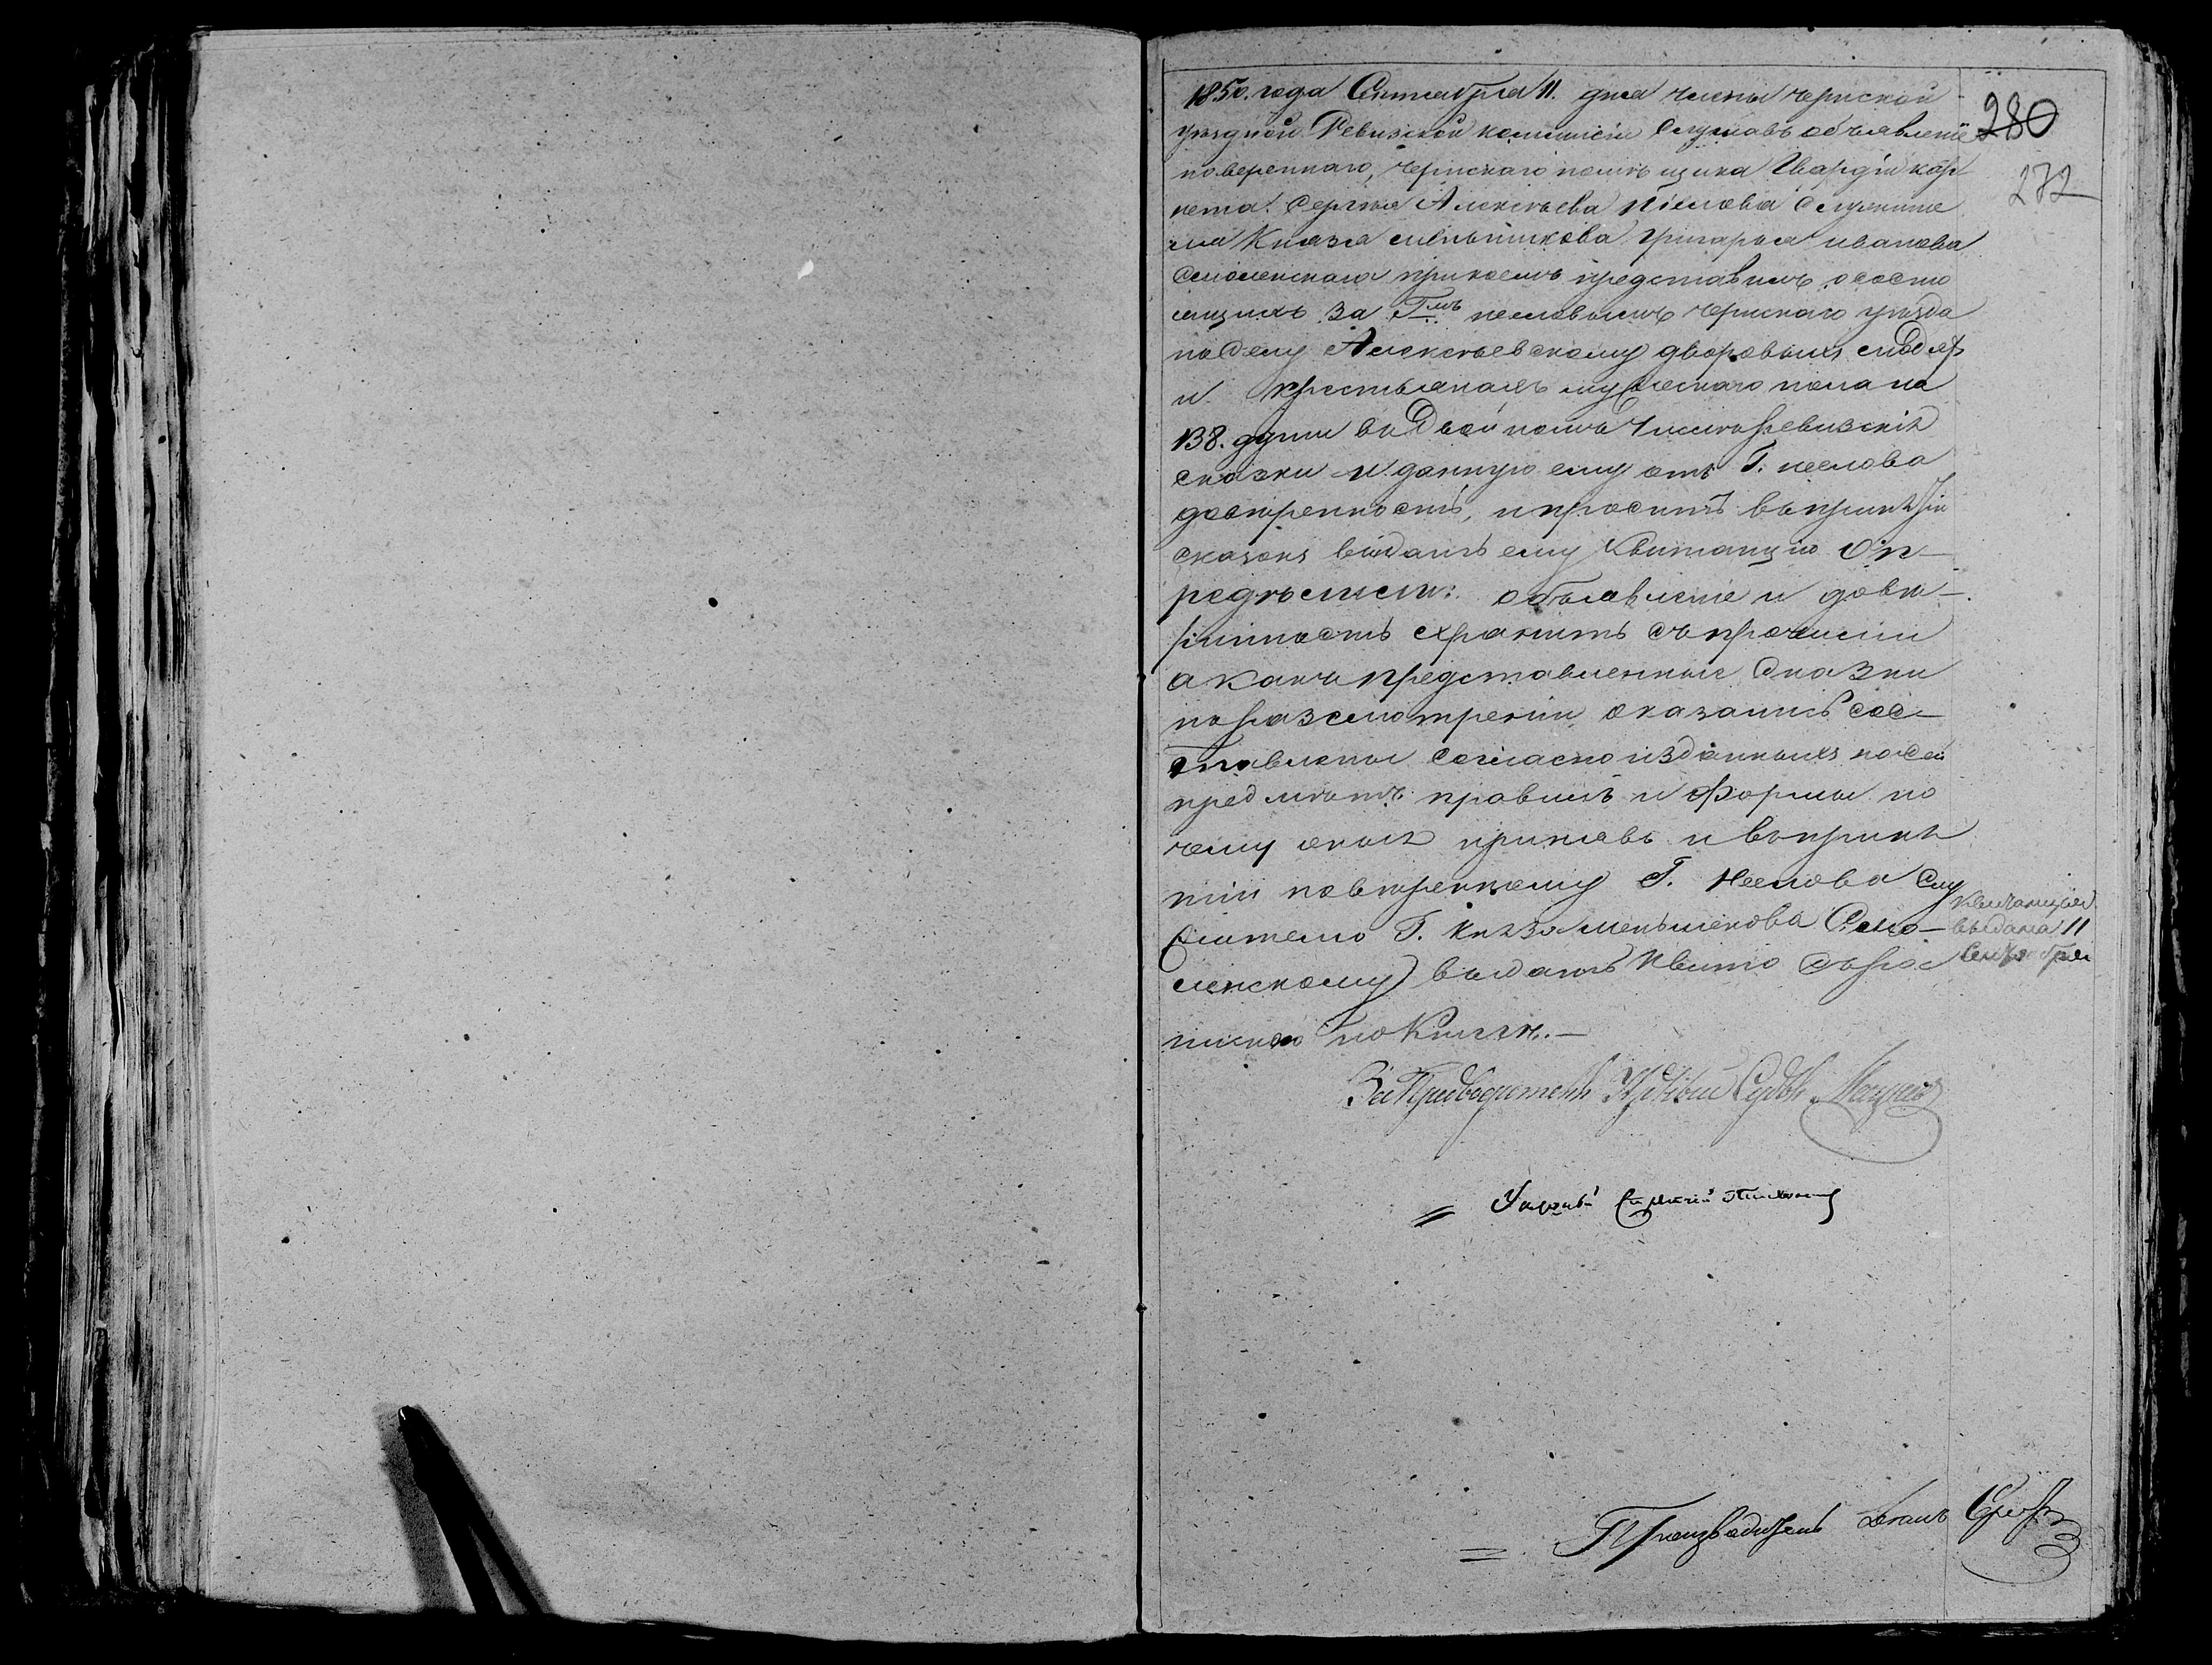 1850. года Сентября 11. дня члены чернской
уездной Ревизской комиссіи слушавъ объявленіе
повереннаго, чернскаго помѣщика Гвардіи кор
нета. Сергея Алексѣева Неелова служите
ля Князя меньшикова, Григорья иванова
Смоленскаго при коемъ представилъ о состо
ящихъ за Г.мъ нееловымъ чернскаго уѣзда
по селу Алексѣевскому дворовыхъ людяхъ
и крестьянахъ мужескаго пола на
138. души въ двойномъ числѣ ревизскія
сказки и данную ему отъ Г. неелова
довѣренность, и проситъ въ принятіи
сказокъ выдать ему квитанцію Оп-
редѣлили: объявленіе и довѣ-
ренность хранить съ прочими
а какъ представленныя сказки
по разсмотреніи оказались сос-
тавлены согласно изданныхъ по сей
предмѣтъ правилъ и формы по
чему оныя принявъ и въ приня
тіи повѣренному Г. Неелова слу
жителю Г. князя меньшикова Смо-
ленскому выдать квито съ рос
пискою по Книгѣ.-
280
272
Квитанція
выдана 11
Сентября
За Предводителя Уѣздный Судья
Производитель дѣлъ